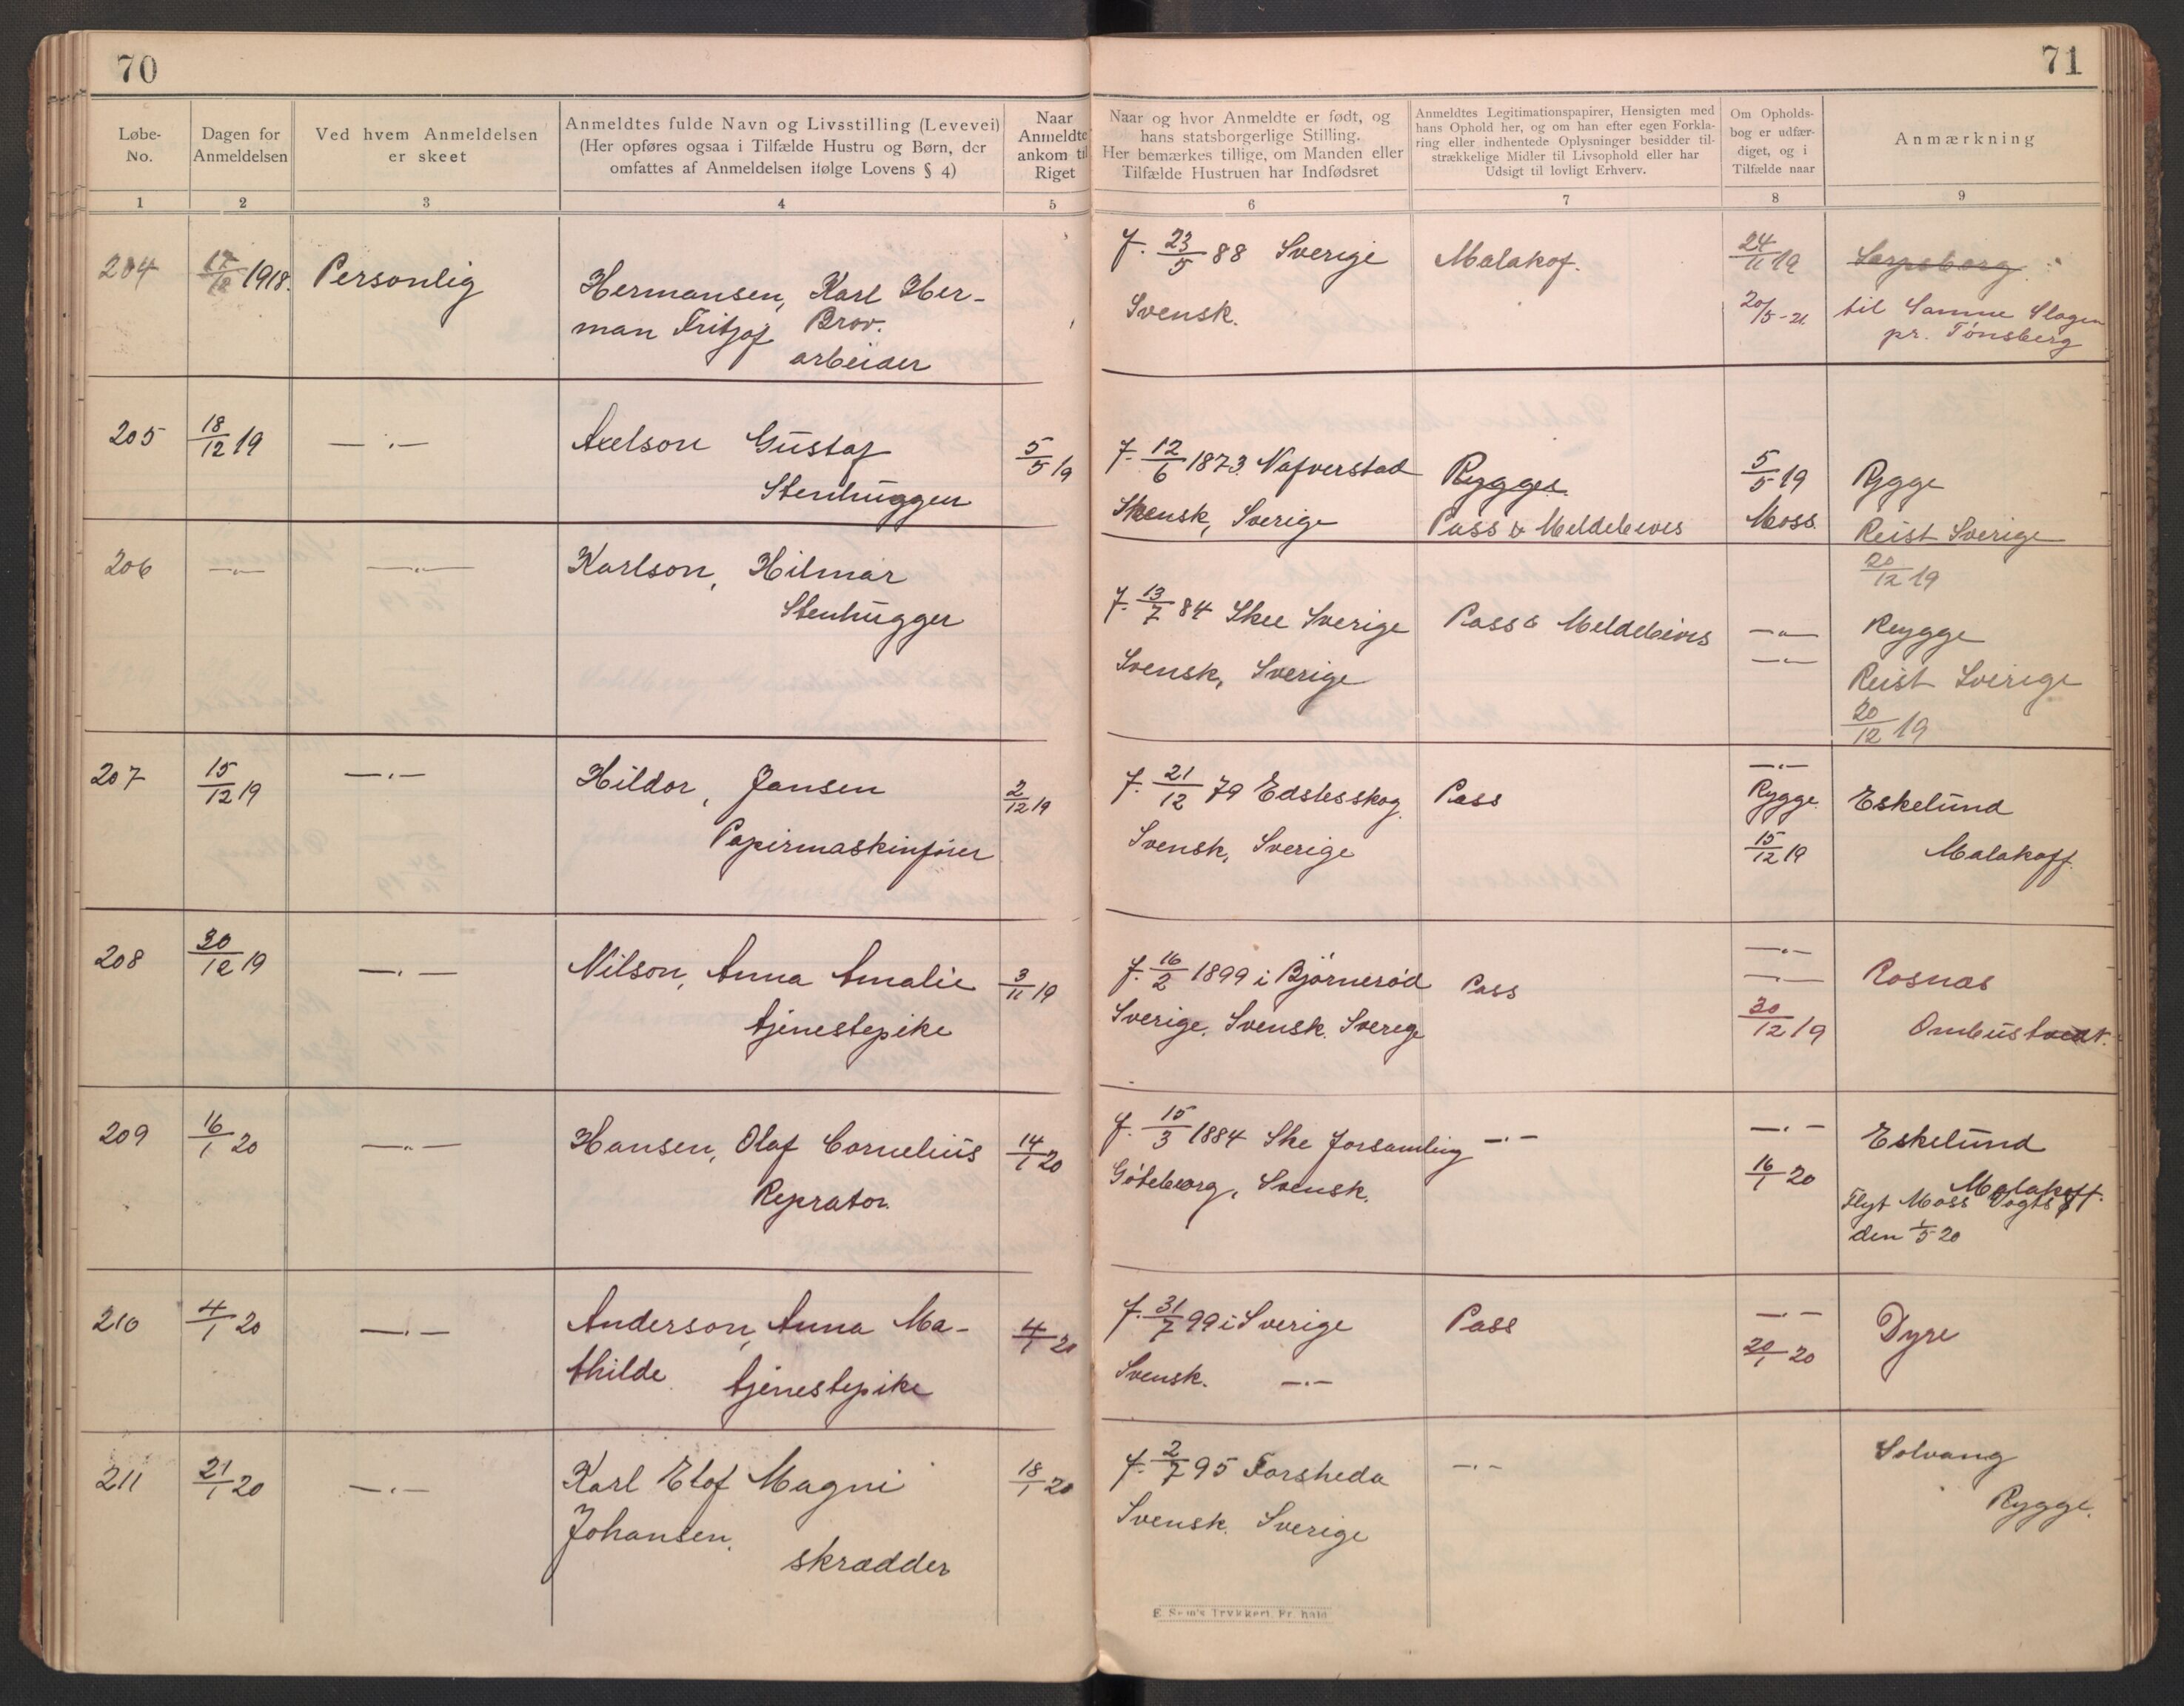 70
71
Løbe-
No.
Dagen for
Anmeldelsen
Ved hvem Anmeldelsen
er skeet
Anmeldtes fulde Navn og Livsstilling (Levevei)
(Her opføres ogsaa i Tilfælde Hustru og Børn, der
omfattes af Anmeldelsen ifølge Lovens § 4)
Naar
Anmeldte
ankom til
Riget
Naar og hvor Anmeldte er født, og
hans statsborgerlige Stilling.
Her bemærkes tillige, om Manden eller
Tilfælde Hustruen har Indfødsret
Anmeldtes Legitimationspapirer, Hensigten med
hans Ophold her, og om han efter egen Forkla-
ring eller indhentede Oplysninger besidder til-
strækkelige Midler til Livsophold eller har
Udsigt til lovligt Erhverv.
Om Opholds-
bog er udfær-
diget, og i
Tilfælde naar
Anmærkning
1 2 3 4 5 6 7 8 9
204 17/12 1918. Personlig
Hermansen, Karl Her-
man Fritjof Brov.
arbeider
f. 23/5 88 Sverige
Svensk.
Malakof.
24/11 19
20/5-21
Sarpsborg
til Samme Slagen
pr. Tønsberg
205 18/12 19 —〃—
Axelson Gustaf
Stenhugger
5/5 19
f. 12/6 1873. Nafverstad
Svensk, Sverige
Rygges
Pass & Meldebevis
5/5 19
Moss
Rygge
Reist Sverige
20/12 19
206 —〃— —〃—
Karlson, Hilmar
Stenhugger
f. 13/7 84 Skee Sverige
Svensk, Sverige
Pass & Meldebevis
—〃—
—〃—
Rygge
Reist Sverige
20/12 19
207 15/12 19 —〃—
Hildor, Jansen
Papirmaskinfører
2/12 19
f. 21/12 79 Edslesskog.
Svensk, Sverige
Pass
—〃—
Rygge
15/12 19
Eskelund
Malakoff.
208 30/12 19 —〃—
Nilson, Anna Amalie
tjenestepike
3/11 19
f. 16/2 1899 i Bjørnerød
Sverige. Svensk. Sverige
Pass
—〃—
—〃—
30/12 19
Rosnas
209 16/1 20 —〃—
Hansen, Olaf Cornelius
Reprator.
14/1 20
f. 15/3 1884 Ske forsamling
Göteborg, Svensk.
—〃—
—〃—
16/1 20
Eskelund
Malakoff.
Flyt Moss Vogts
den 1/5 20
210 4/1 20 —〃—
Anderson, Anna Ma-
thilde tjenestepike
4/1 20
f. 31/7 99 i Sverige
Svensk. —〃—
Pass
—〃—
20/1 20
Dyre
211 21/1 20 —〃—
Karl Elof Magni
Johansen.
skrædder
18/1 20
f. 2/7 95 Forsheda
Svensk. Sverige
—〃—
Solvang
Rygge.
E. Sem's Trykkeri, Fr.hald